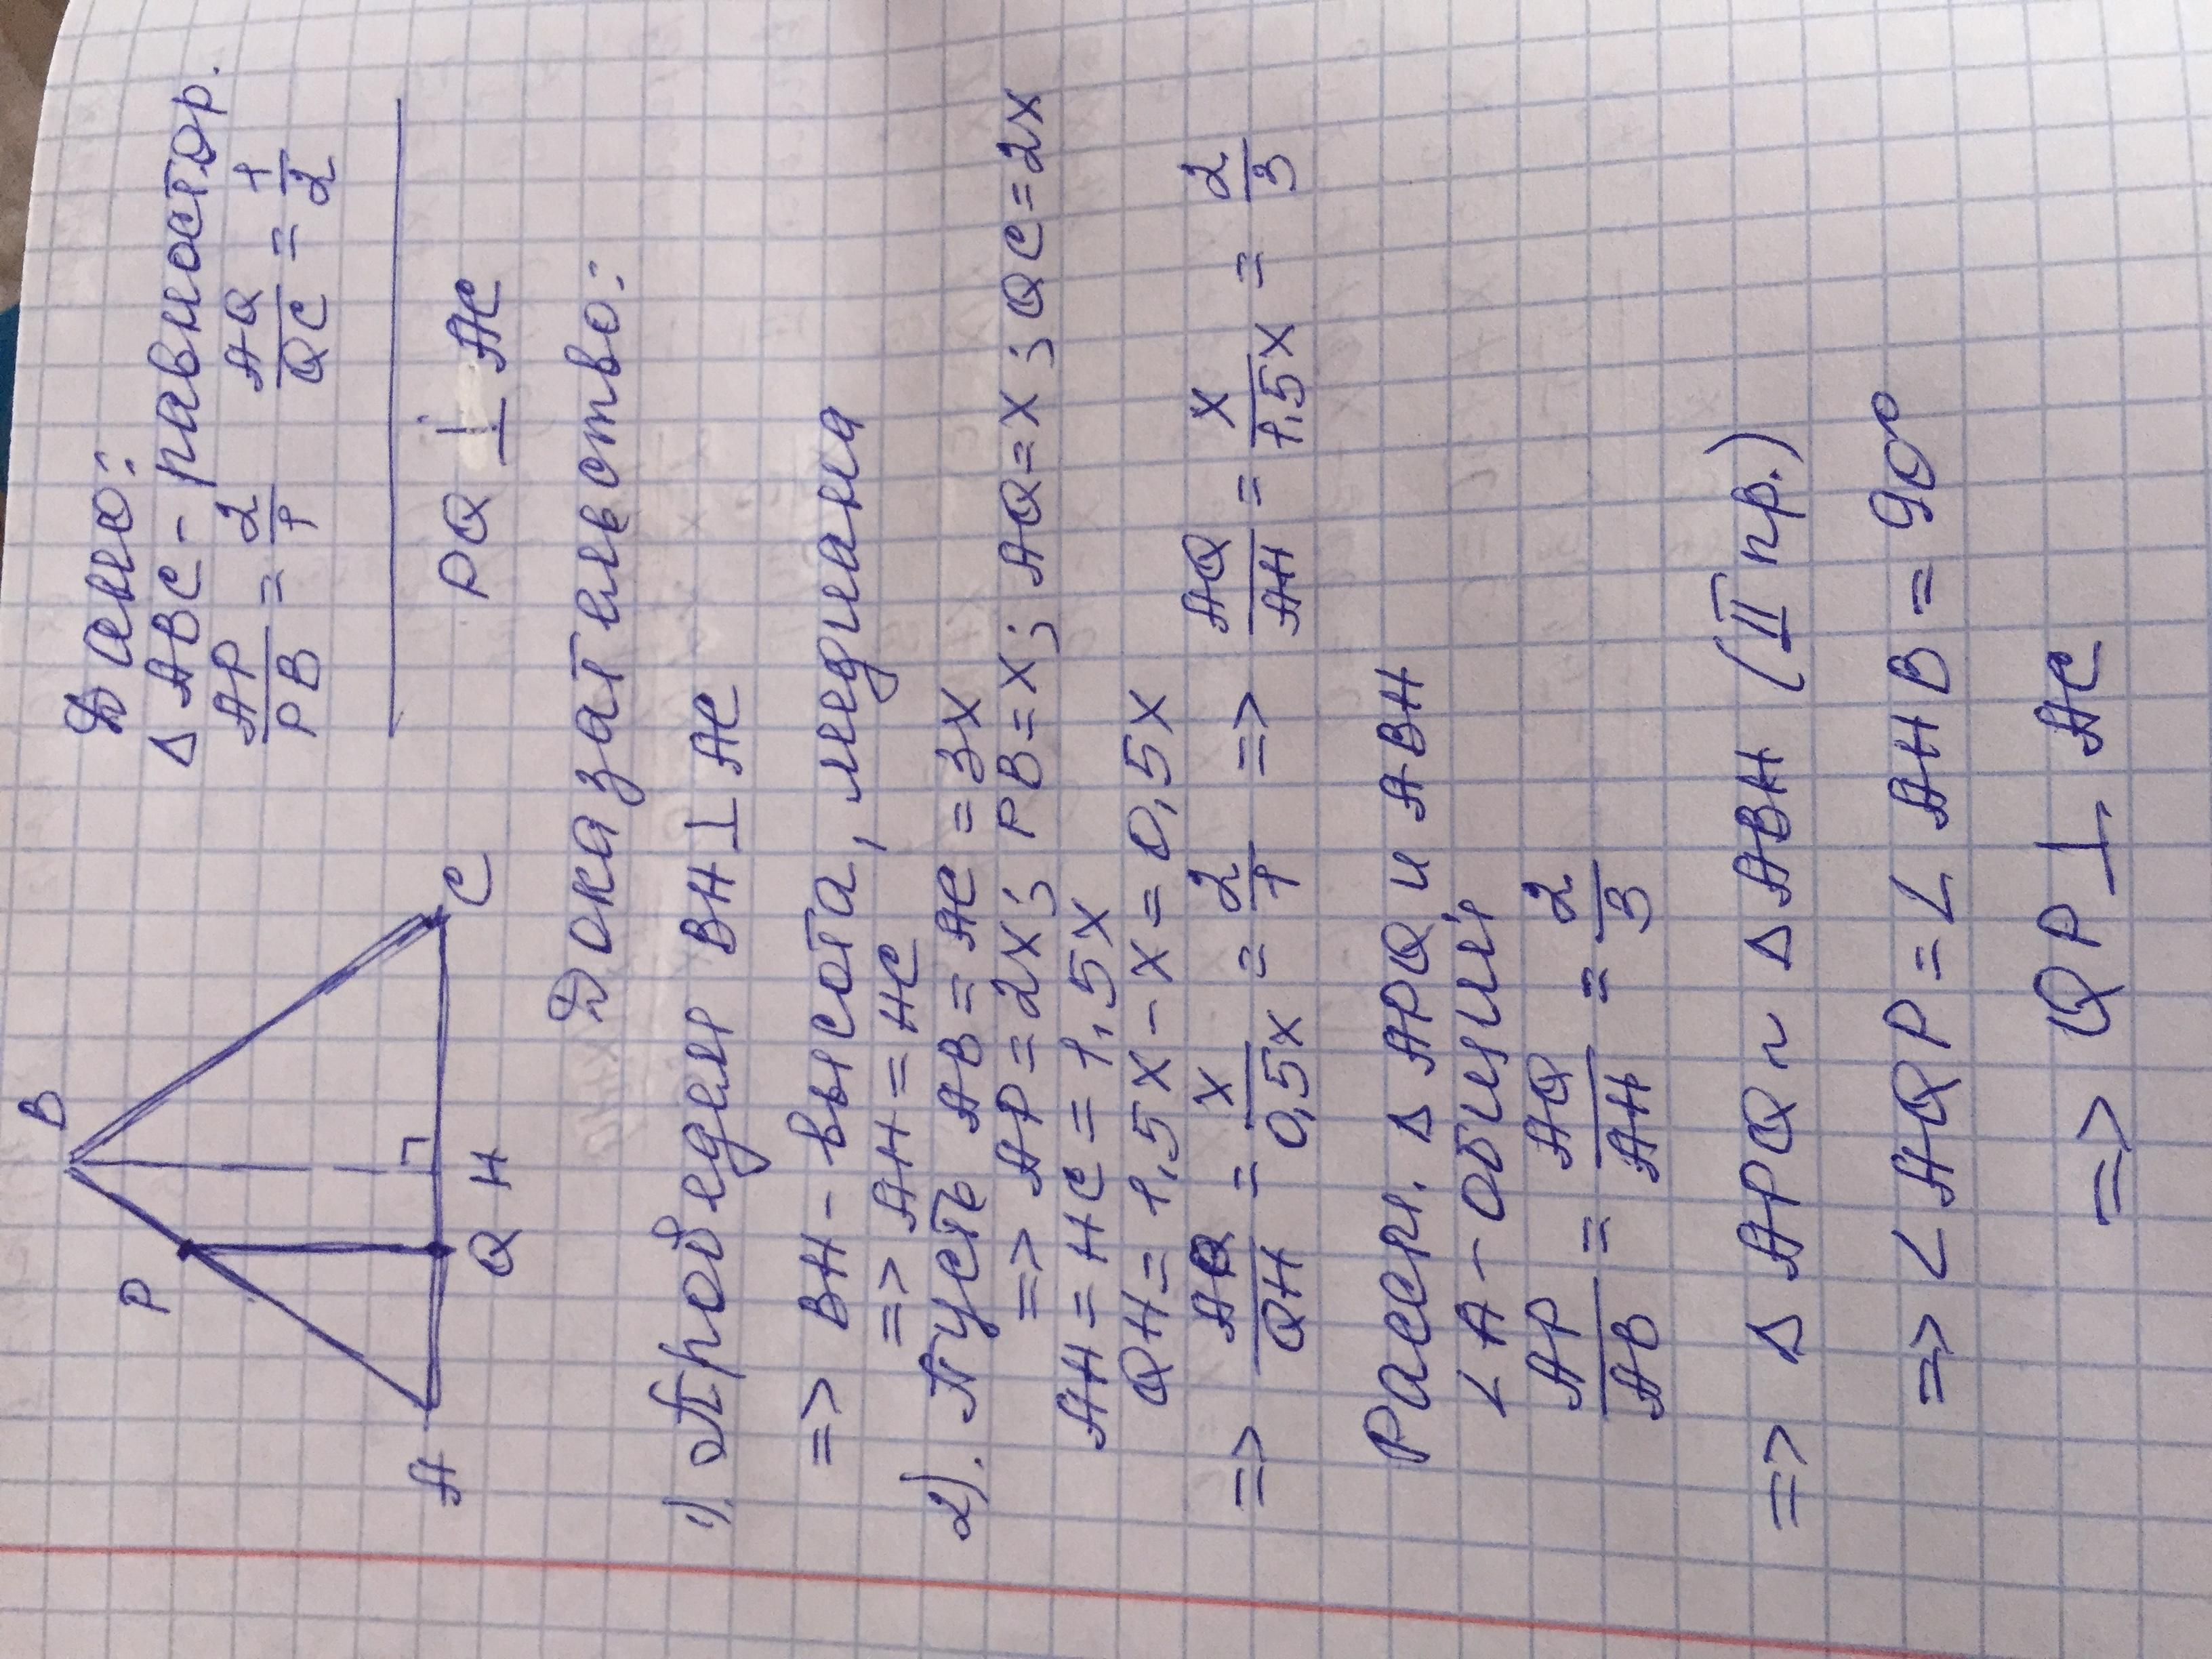 B
P
A
Q
H
C
Дано:
Δ ABC - равностор.
AP/PB = 2/1 AQ/QC = 1/2
PQ ⊥ AC
Доказательство:
1). Проведем BH ⊥ AC
=> BH - высота, медиана
=> AH = HC
2). Пусть AB = AC = 3x
=> AP = 2x; PB = x; AQ = x; QC = 2x
AH = HC = 1,5x
QH = 1,5x - x = 0,5x
=> AQ/QH = x/0,5x = 2/1 => AQ/AH = x/1,5x = 2/3
Рассм. Δ APQ и ABH
∠A - общий,
AP/AB = AQ/AH = 2/3
=> Δ APQ ~ Δ ABH (II пр.)
=> ∠ AQP = ∠ AHB = 90°
=> QP ⊥ AC